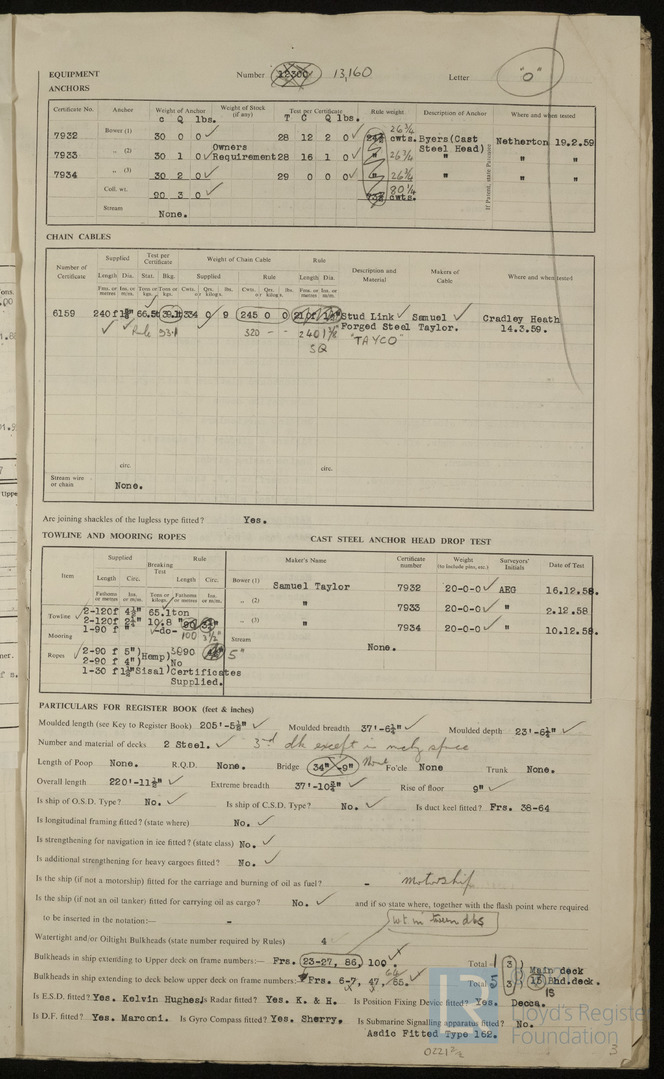 EQUIPMENT Number 12300 13,160 Letter "O"
ANCHORS
Certificate No. Anchor Weight of Anchor Weight of Stock (if any) Test per Certificate Rule weight Description of Anchor Where and when tested
c Q lbs. T C Q lbs.
7932 Bower (1) 30 0 0 28 12 2 0 26¾ cwts. Byers(Cast Steel Head) Netherton 19.2.59
7933 „ (2) 30 1 0 Owners Requirement 28 16 1 0 " 26¾ " " "
7934 „ (3) 30 2 0 29 0 0 0 " 26¾ " " "
Coll. wt. 90 3 0 80¼ cwts.
Stream None.
If Patent, state Patentees
CHAIN CABLES
Number of Certificate Supplied Test per Certificate Weight of Chain Cable Rule Description and Material Makers of Cable Where and when tested
Length Dia. Stat. Bkg. Supplied Rule Length Dia.
Fms. or metres Ins. or m/m. Tons or kgs. Tons or kgs. Cwts. or Qrs. kilog's. lbs. Cwts. or Qrs. kilog's. lbs. Fms. or metres Ins. or m/m.
6159 240f 66.5t 39.1t 334 0 9 245 0 0 210f Stud Link Samuel Cradley Heath
Rule 320 - - 240 Forged Steel Taylor. 14.3.59.
SQ "TAYCO"
circ. circ.
Stream wire or chain None.
Are joining shackles of the lugless type fitted? Yes.
TOWLINE AND MOORING ROPES CAST STEEL ANCHOR HEAD DROP TEST
Item Supplied Breaking Test Rule Maker's Name Certificate number Weight (to include pins, etc.) Surveyors' Initials Date of Test
Length Circ. Length Circ.
Fathoms or metres Ins. or m/m. Tons or kilog's. Fathoms or metres Ins. or m/m.
Bower (1) Samuel Taylor 7932 20-0-0 AEG 16.12.58.
„ (2) " 7933 20-0-0 " 2.12.58
„ (3) " 7934 20-0-0 " 10.12.58.
Stream None.
Towline 2-120f 4½" 65.1ton
2-120f 2¾" 10.8 " 90
Mooring 1-90 f " -do- 100 3½"
Ropes 2-90 f 5") Hemp) 90 5"
2-90 f 4") No
1-30 f Sisal) Certificates
Supplied.
PARTICULARS FOR REGISTER BOOK (feet & inches)
Moulded length (see Key to Register Book) 205'-5½" Moulded breadth 37'-6¼" Moulded depth 23'-6¼"
Number and material of decks 2 Steel. 3rd dk except in mchy space
Length of Poop None. R.Q.D. None. Bridge 34"-9" None Fo'cle None Trunk None.
Overall length 220'-11½" Extreme breadth 37'-10¾" Rise of floor 9"
Is ship of O.S.D. Type? No. Is ship of C.S.D. Type? No. Is duct keel fitted? Frs. 38-64
Is longitudinal framing fitted? (state where) No.
Is strengthening for navigation in ice fitted? (state class) No.
Is additional strengthening for heavy cargoes fitted? No.
Is the ship (if not a motorship) fitted for the carriage and burning of oil as fuel? - motorship
Is the ship (if not an oil tanker) fitted for carrying oil as cargo? No. and if so state where, together with the flash point where required
to be inserted in the notation:— -
Watertight and/or Oiltight Bulkheads (state number required by Rules) 4
Bulkheads in ship extending to Upper deck on frame numbers:— Frs. 23-27, 86, 100 Total 3 ) Main deck
Bulkheads in ship extending to deck below upper deck on frame numbers:— Frs. 6-7, 47, 85. Total 3 ) Bhd.deck.
Is E.S.D. fitted? Yes. Kelvin Hughes, Is Radar fitted? Yes. K. & H. Is Position Fixing Device fitted? Yes. Decca.
Is D.F. fitted? Yes. Marconi. Is Gyro Compass fitted? Yes. Sherry. Is Submarine Signalling apparatus fitted? No.
Asdic Fitted Type 162.
LR Lloyd's Register Foundation
3